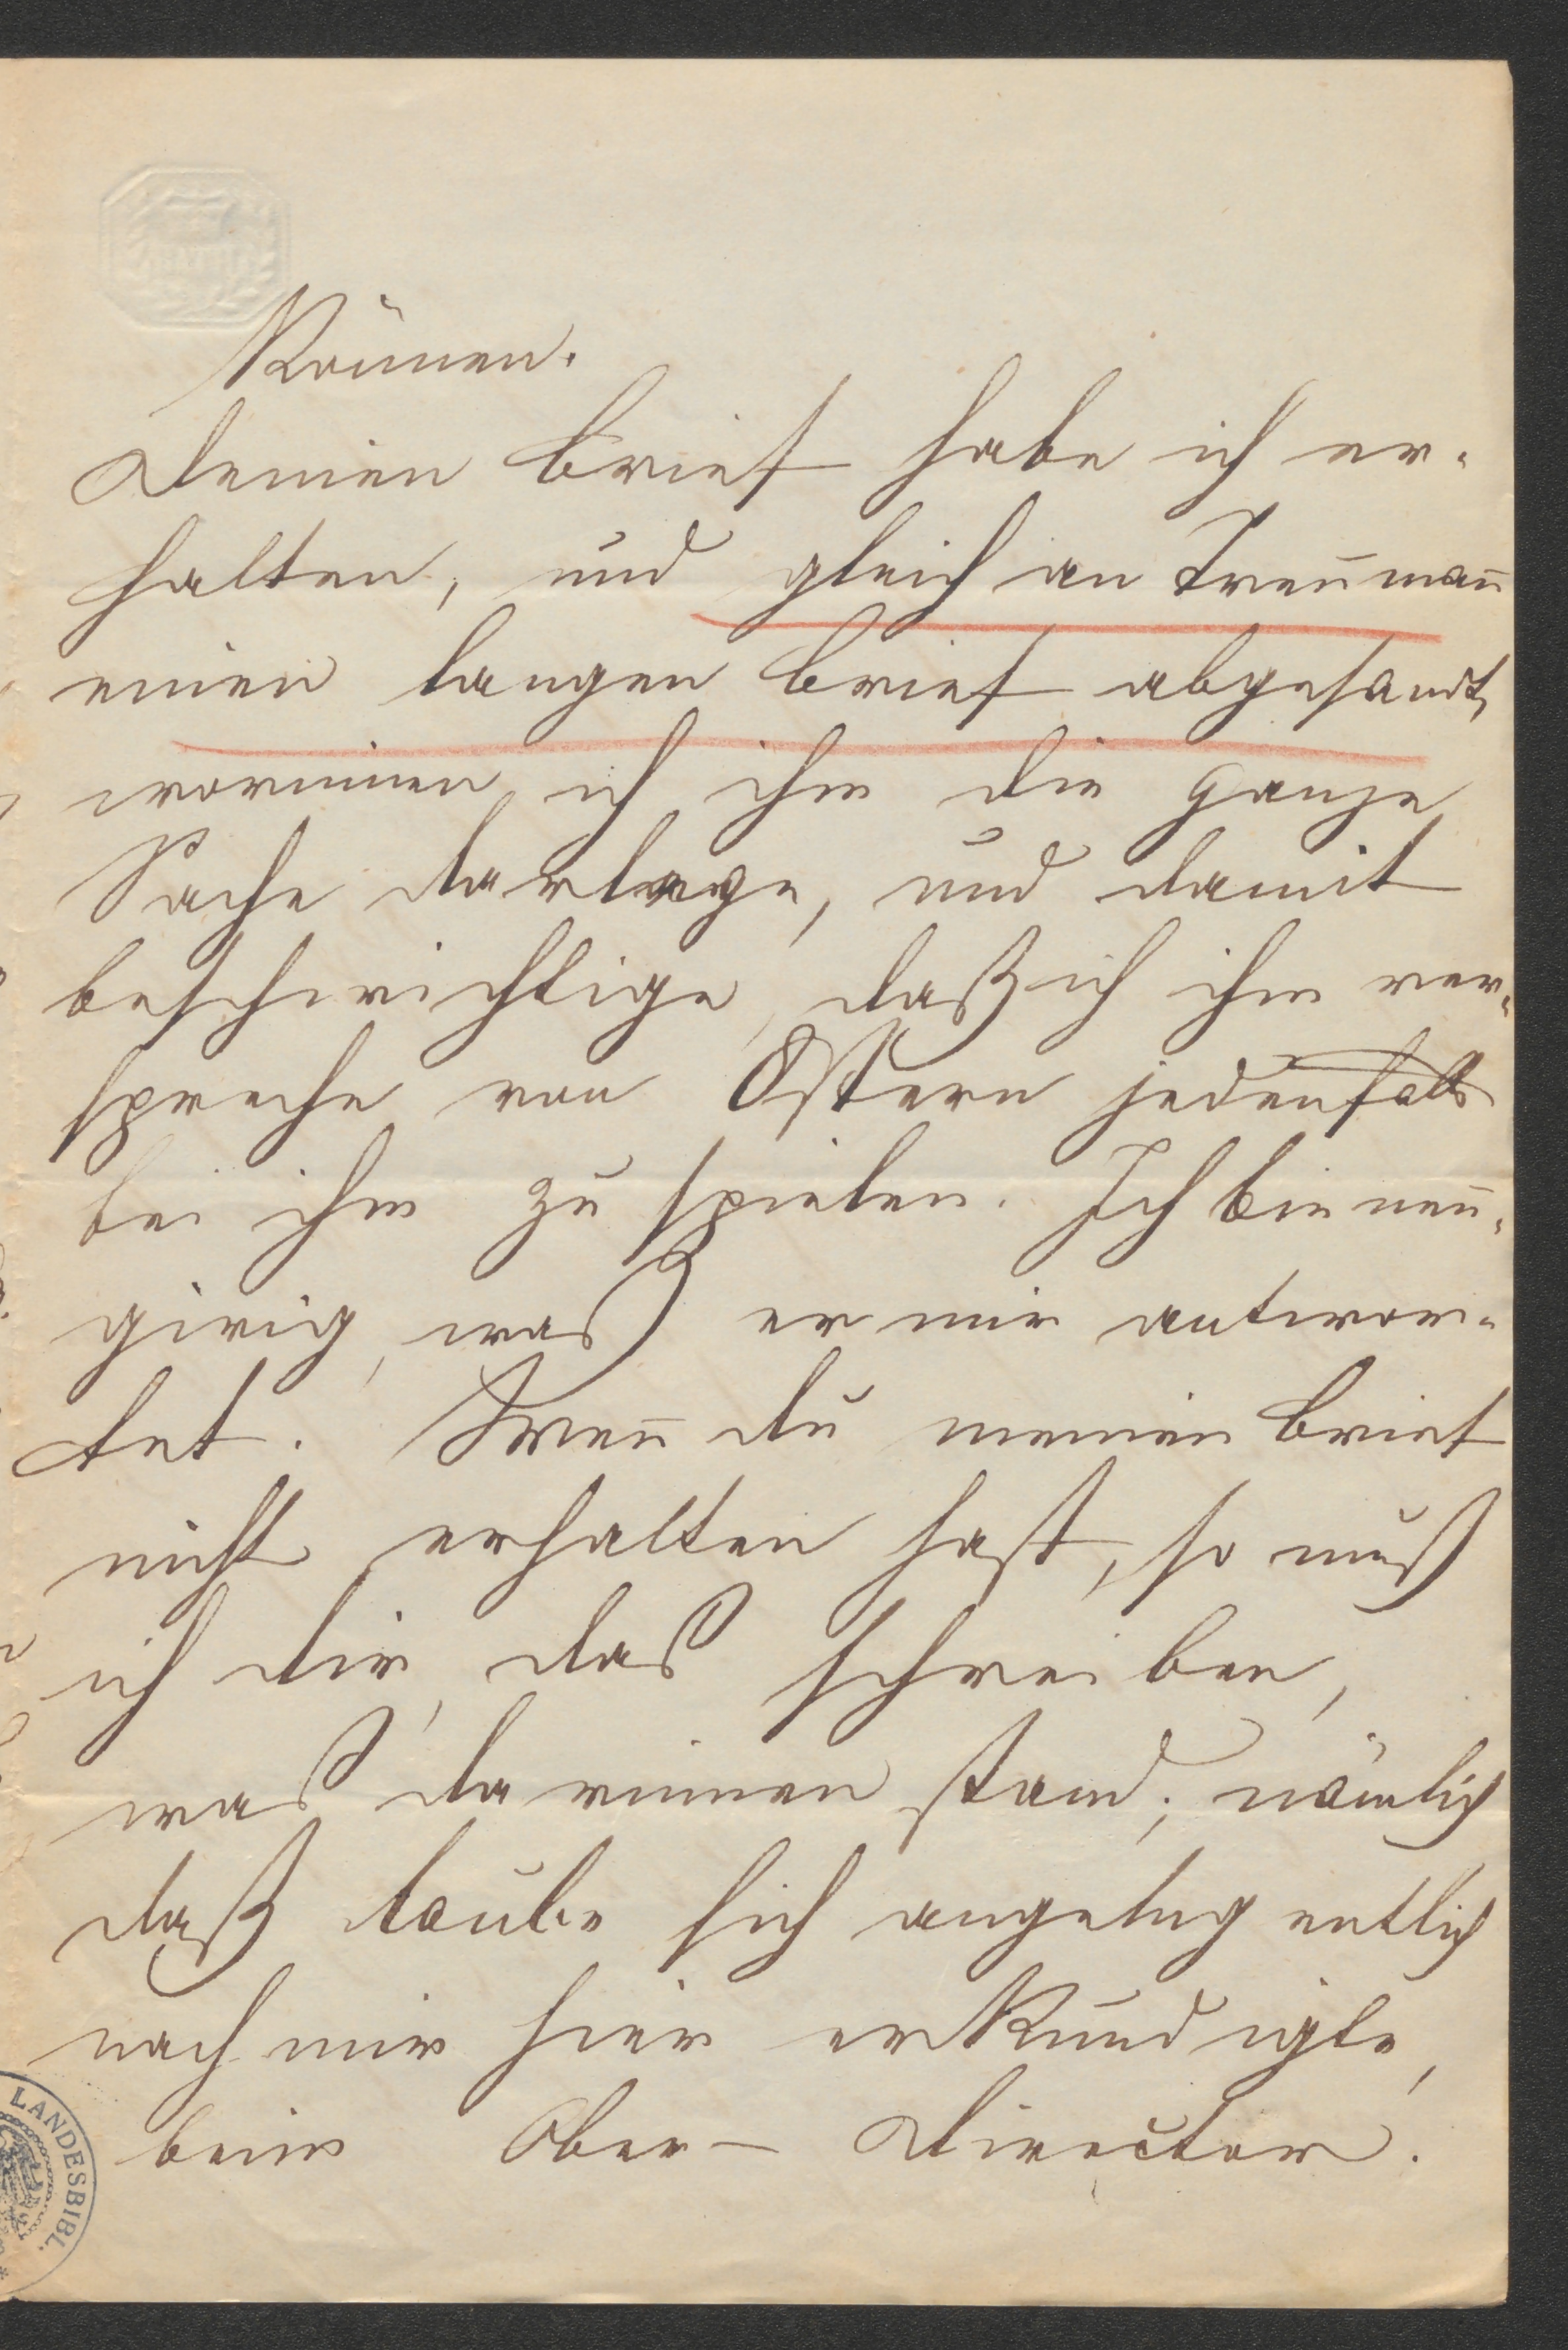 Können.
Deinen Brief habe ich er-
halten, und gleich an Treuman̄
einen langen Brief abgesandt,
worinnen ich ihm die ganze
Sache darlege, und damit
beschwichtige, daß ich ihm ver-
spreche von Ostern jedenfalls
bei ihm zu spielen. Ich bin neu-
girig, was er mir antwor-
tet. Wen̄ du meinen Brief
nicht erhalten hast, so muß
ich dir, das schreiben,
was darinnen stand; nämlich
daß Laube sich angelegentlich
nach mir hier erkundigte,
beim Ober- Director.
LANDESBIBL.